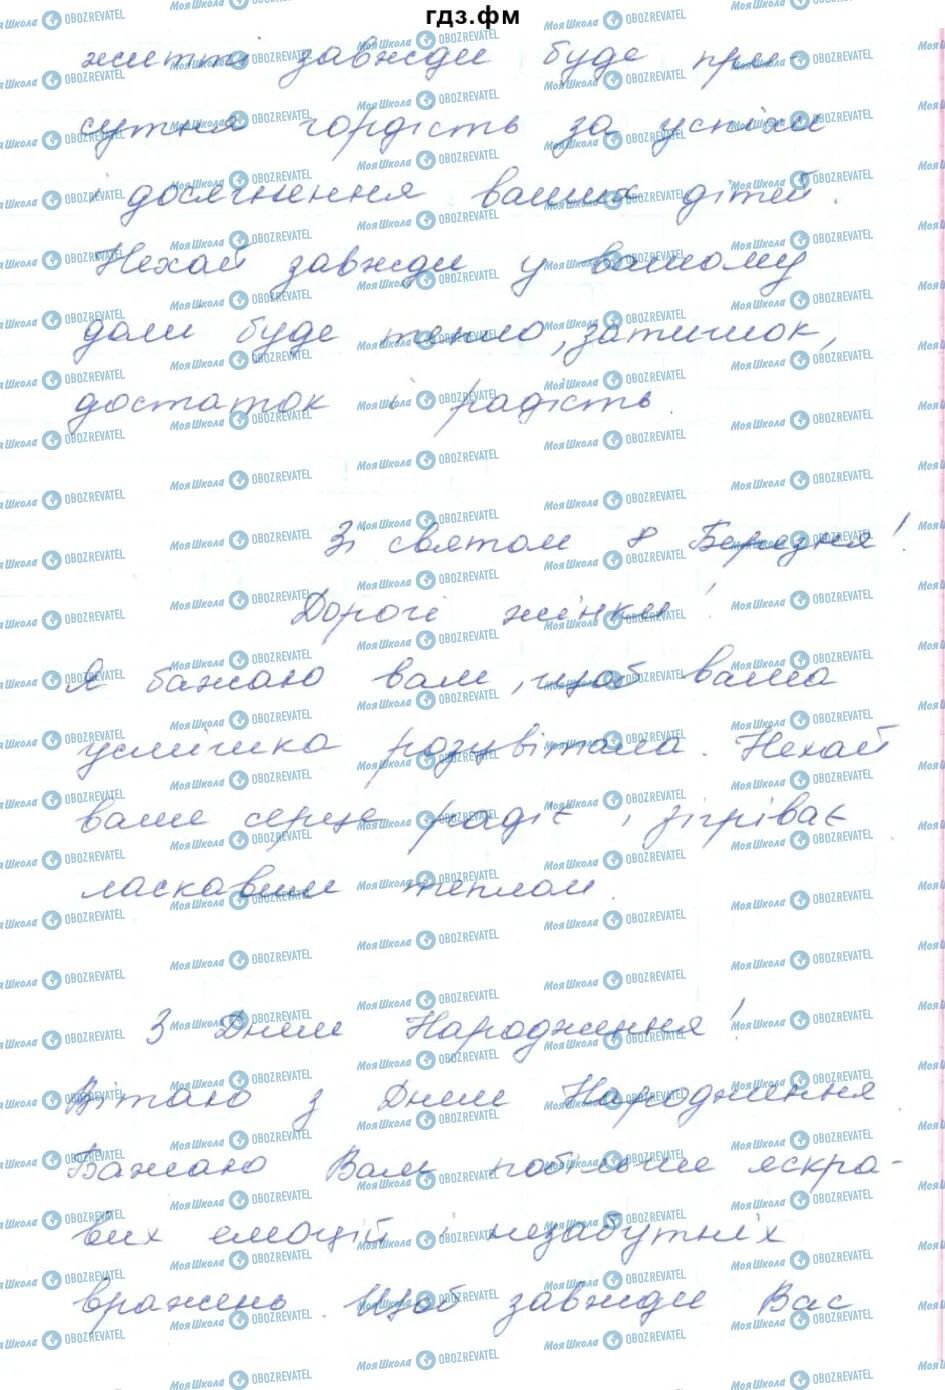 гдз.фм
житті завжди буде при-
сутня гордість за успіхи
і досягнення ваших дітей.
Нехай завжди у вашому
домі буде тепло, затишок,
достаток і радість.
Зі святом 8 Березня!
Дорогі жінки!
Я бажаю вам, щоб ваша
усмішка розцвітала. Нехай
ваше серце радіє і зігріває
ласкавим теплом.
З Днем Народження!
Вітаю з Днем Народження
Бажаю Вам побільше яскра-
вих емоцій і незабутніх
вражень. Щоб завжди Вас